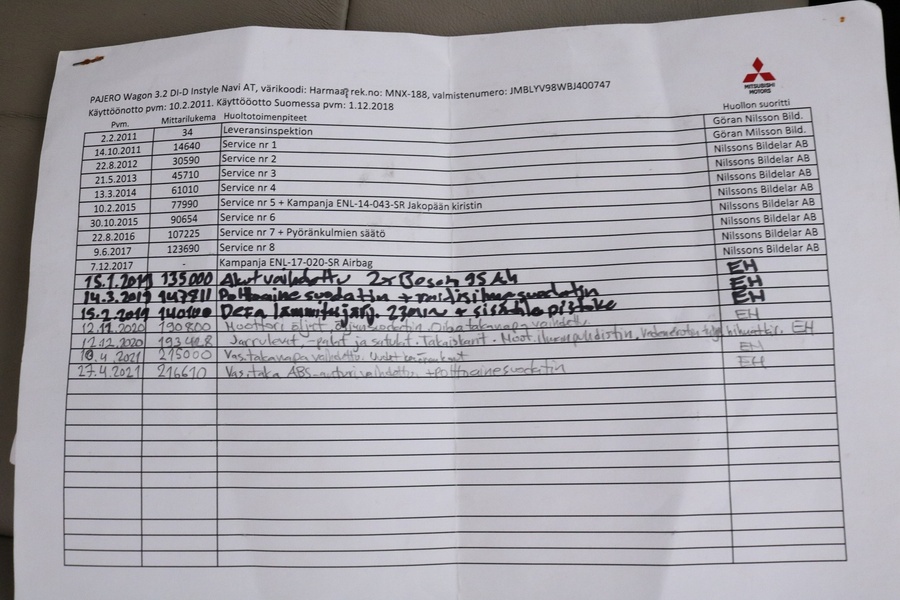 MITSUBISHI
MOTORS
PAJERO Wagon 3.2 DI-D Instyle Navi AT, värikoodi: Harmaa, rek.no: MNX-188, valmistenumero: JMBLYV98WBJ400747
Käyttöönotto pvm: 10.2.2011. Käyttöönotto Suomessa pvm: 1.12.2018
Pvm. Mittarilukema Huoltotoimenpiteet Huollon suoritti
2.2.2011 34 Leveransinspektion Göran Nilsson Bild.
14.10.2011 14640 Service nr 1 Göran Milsson Bild.
22.8.2012 30590 Service nr 2 Nilssons Bildelar AB
21.5.2013 45710 Service nr 3 Nilssons Bildelar AB
13.3.2014 61010 Service nr 4 Nilssons Bildelar AB
10.2.2015 77990 Service nr 5 + Kampanja ENL-14-043-SR Jakopään kiristin Nilssons Bildelar AB
30.10.2015 90654 Service nr 6 Nilssons Bildelar AB
22.8.2016 107225 Service nr 7 + Pyöränkulmien säätö Nilssons Bildelar AB
9.6.2017 123690 Service nr 8 Nilssons Bildelar AB
7.12.2017 - Kampanja ENL-17-020-SR Airbag Nilssons Bildelar AB
15.1.2019 135000 Akut vaihdettu 2x Bosch 95 Ah EH
14.3.2019 147811 Polttoainesuodatin + raitisilmasuodatin EH
15.2.2019 140100 Defa lämmitysjärj. + sisätila pistoke EH
12.11.2020 190800 Moottori öljyt, öljynsuodatin. Oikea takanapa vaihdettu EH
12.12.2020 193428 Jarrulevyt, -palat ja satulat. Takaiskarit. Moot. ilmanpuhdistin, EH
10.4.2021 215000 Vas. takanapa vaihdettu. Uudet EH
27.4.2021 216610 Vas. taka ABS-anturi vaihdettu. + polttoainesuodatin EH